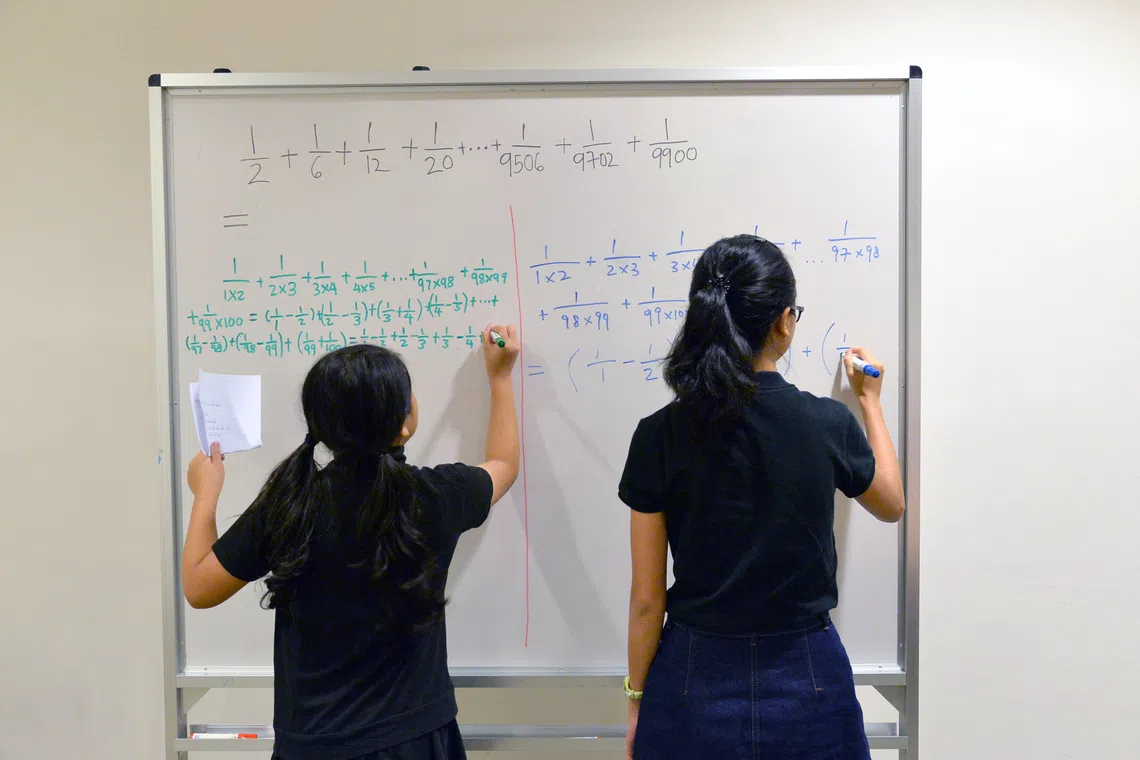 1/2 + 1/6 + 1/12 + 1/20 + ... + 1/9506 + 1/9702 + 1/9900
=
1/1x2 + 1/2x3 + 1/3x4 + 1/4x5 + ... + 1/97x98 + 1/98x99
+ 1/99x100 = (1/1 - 1/2) + (1/2 - 1/3) + (1/3 + 1/4) + (1/4 - 1/5) + ... +
(1/97 - 1/98) + (1/98 - 1/99) + (1/99 + 1/100) = 1/1 - 1/2 + 1/2 - 1/3 + 1/3 - 1/4 +
1/1x2 + 1/2x3 + + ... 1/97x98
+ 1/98x99 +
= (1/1 - 1/2 ) + (1/